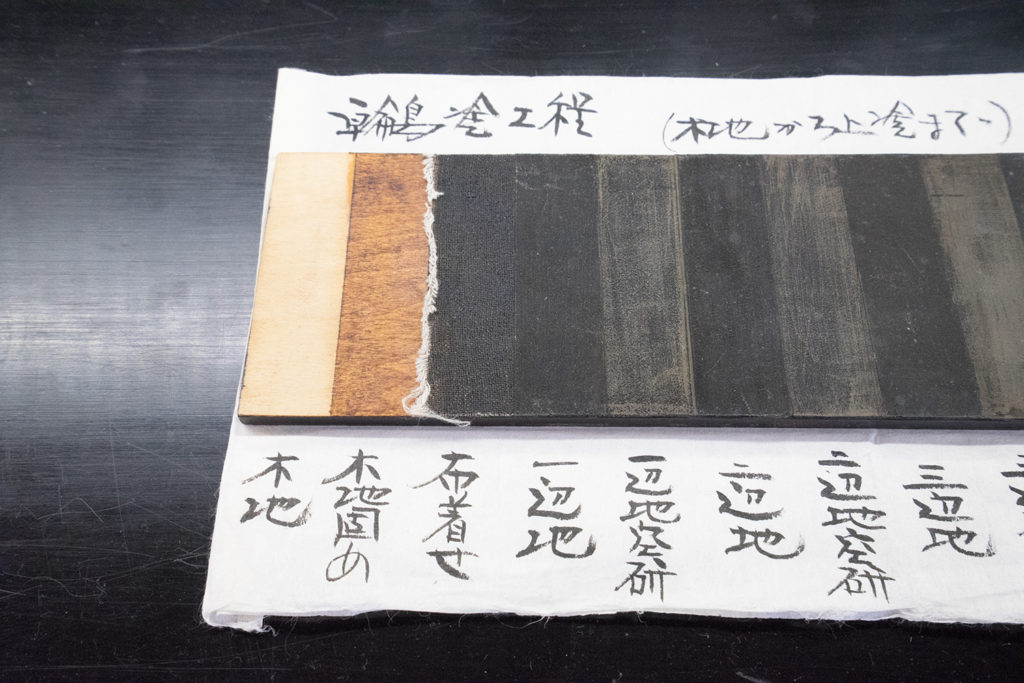 輪島塗工程 (木地から上塗まで)
木地
木地固め
布着せ
一辺地
一辺地空研
二辺地
二辺地空研
三辺地
三